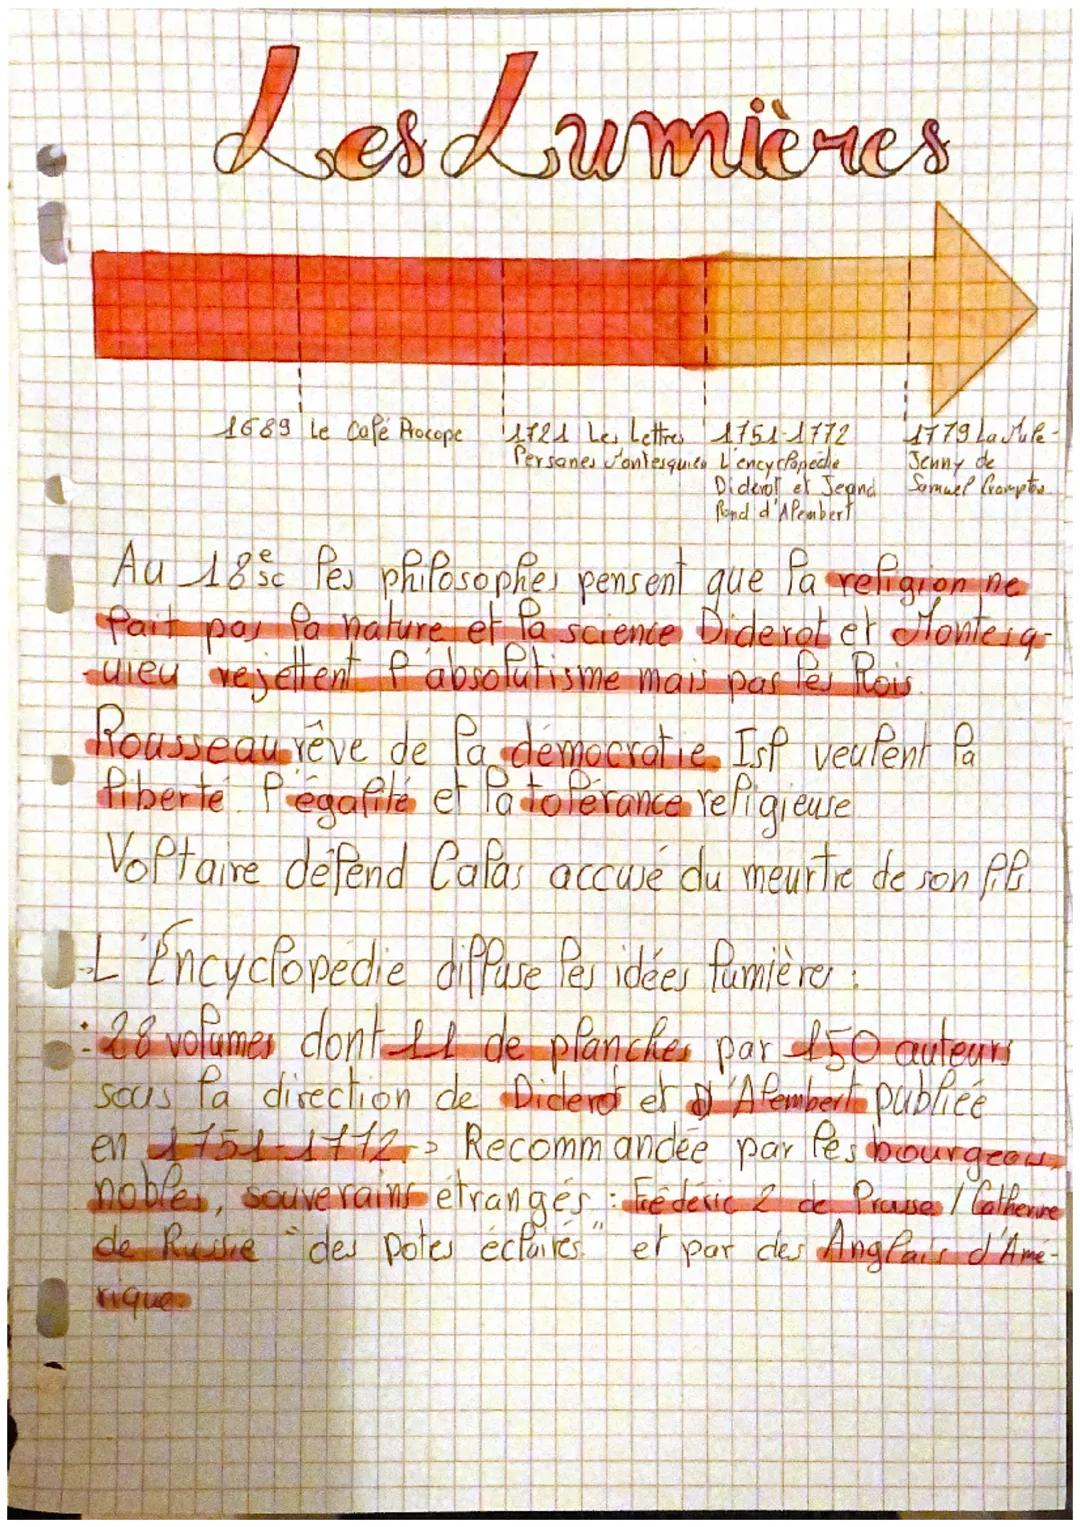 Les Lumières
1689 Le Café Procope
1721 Les Lettres
Persanes Montesquieu
1751-1772
L'encyclopédie
Diderot et Jean
Rond d'Alembert
1779 La Mule-
Jenny de
Samuel Crompton
Au 18e sc les philosophes pensent que la religion ne
fait pas la nature et la science Diderot et Montesq-
uieu rejettent l'absolutisme mais pas les Rois.
Rousseau rêve de la démocratie Isl veulent la
liberté. l'égalité et la tolérance religieuse
Voltaire défend Calas accusé du meurtre de son fils.
L'Encyclopédie diffuse les idées lumières :
: 28 volumes dont 11 de planches par 150 auteurs
sous la direction de Diderot et d'Alembert publiée
en 1751-1772 > Recommandée par les bourgeois,
nobles, souverains étrangés : Frédéric 2 de Prusse / Catherine
de Russie "des potes éclairés" et par des Anglais d'Amé-
rique.